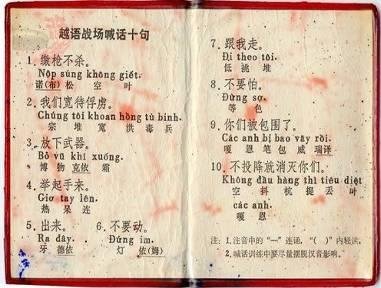 越语战场喊话十句
1. 缴枪不杀。
Nộp súng không giết.
诺(布)松 空 叶
2. 我们宽待俘虏。
Chúng tôi khoan hồng tù binh.
宗 堆 宽 洪 毒 兵
3. 放下武器。
Bỏ vũ khí xuống.
博 物 克依 霜
4. 举起手来。
Giơ tay lên.
热 呆 连
5. 出来。 6. 不要动。
Ra đây. Đứng im.
牙 德依 灯 依(姆)
7. 跟我走。
Đi theo tôi.
低 挑 堆
8. 不要怕。
Đừng sợ.
等 色
9. 你们被包围了。
Các anh bị bao vây rồi.
嘎 恩 笔 包 威 瑞译
10. 不投降就消灭你们。
Không đầu hàng thì tiêu diệt
空 抖 杭 提 丢 叶
các anh.
嘎 恩
注：1.注音中的“—”连读，“( )”内轻读。
2.喊话训练中要尽量摆脱汉音影响。